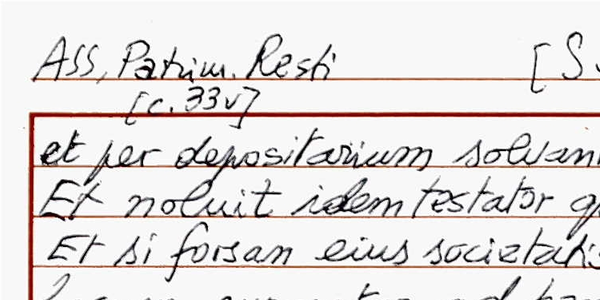 Ass. Patrim. Resti [S.
[c. 33v]
et per depositarium solvan
Et noluit idem testator q
Et si forsan eius societatis